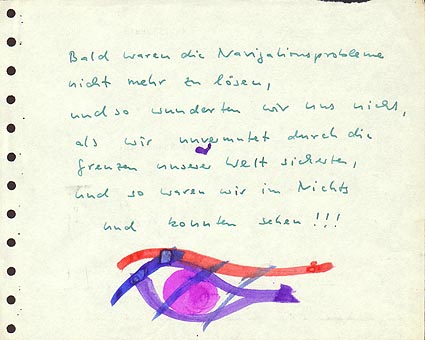 Bald waren die Navigationsprobleme
nicht mehr zu lösen,
und so wunderten wir uns nicht,
als wir unvermutet durch die
Grenzen unserer Welt sickerten,
und so waren wir im Nichts
und konnten sehen !!!